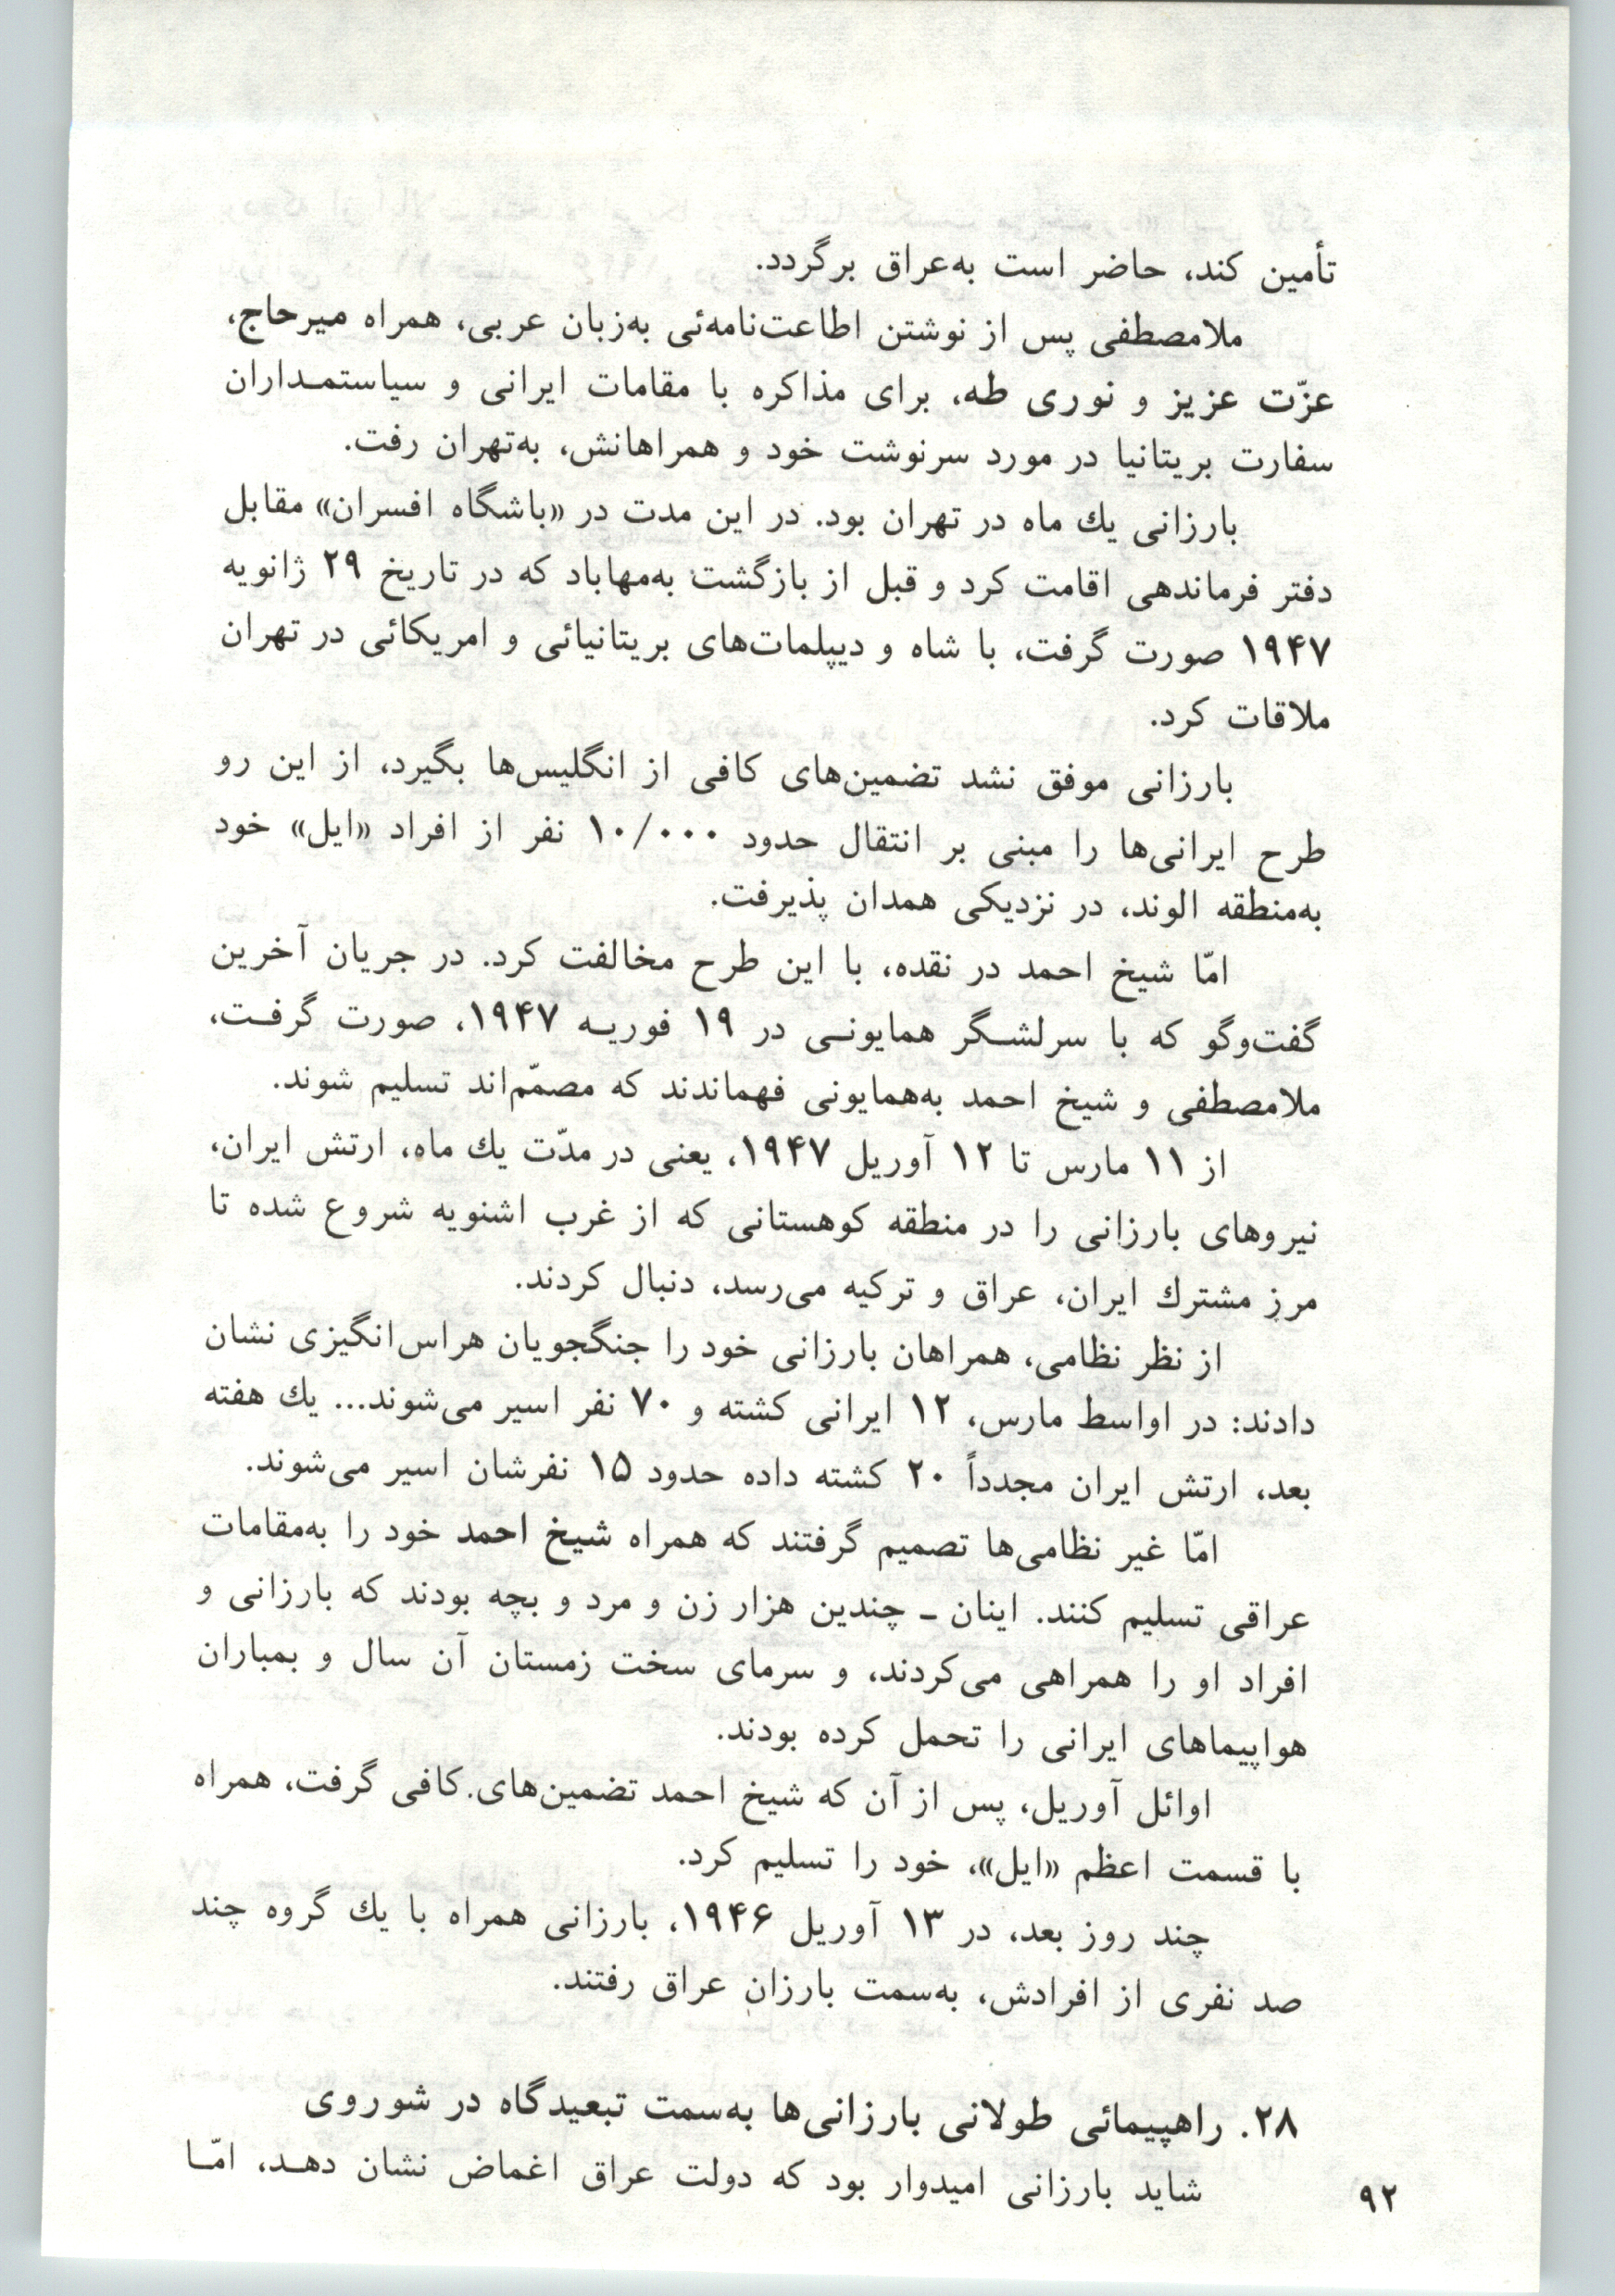 تأمین کند، حاضر است به‌عراق برگردد.
ملامصطفی پس از نوشتن اطاعت‌نامه‌ئی به‌زبان عربی، همراه میرحاج،
عزّت عزیز و نوری طه، برای مذاکره با مقامات ایرانی و سیاستمـداران
سفارت بریتانیا در مورد سرنوشت خود و همراهانش، به‌تهران رفت.
بارزانی یك ماه در تهران بود. در این مدت در «باشگاه افسران» مقابل
دفتر فرماندهی اقامت کرد و قبل از بازگشت به‌مهاباد که در تاریخ ۲۹ ژانویه
۱۹۴۷ صورت گرفت، با شاه و دیپلمات‌های بریتانیائی و امریکائی در تهران
ملاقات کرد.
بارزانی موفق نشد تضمین‌های کافی از انگلیس‌ها بگیرد، از این رو
طرح ایرانی‌ها را مبنی بر انتقال حدود ۱۰/۰۰۰ نفر از افراد «ایل» خود
به‌منطقه الوند، در نزدیکی همدان پذیرفت.
امّا شیخ احمد در نقده، با این طرح مخالفت کرد. در جریان آخرین
گفت‌وگو که با سرلشـگر همایونـی در ۱۹ فوریـه ۱۹۴۷، صورت گرفـت،
ملامصطفی و شیخ احمد به‌همایونی فهماندند که مصمّم‌اند تسلیم شوند.
از ۱۱ مارس تا ۱۲ آوریل ۱۹۴۷، یعنی در مدّت یك ماه، ارتش ایران،
نیروهای بارزانی را در منطقه کوهستانی که از غرب اشنویه شروع شده تا
مرز مشترك ایران، عراق و ترکیه می‌رسد، دنبال کردند.
از نظر نظامی، همراهان بارزانی خود را جنگجویان هراس‌انگیزی نشان
دادند: در اواسط مارس، ۱۲ ایرانی کشته و ۷۰ نفر اسیر می‌شوند... یك هفته
بعد، ارتش ایران مجدداً ۲۰ کشته داده حدود ۱۵ نفرشان اسیر می‌شوند.
امّا غیر نظامی‌ها تصمیم گرفتند که همراه شیخ احمد خود را به‌مقامات
عراقی تسلیم کنند. اینان ـ چندین هزار زن و مرد و بچه بودند که بارزانی و
افراد او را همراهی می‌کردند، و سرمای سخت زمستان آن سال و بمباران
هواپیماهای ایرانی را تحمل کرده بودند.
اوائل آوریل، پس از آن که شیخ احمد تضمین‌های کافی گرفت، همراه
با قسمت اعظم «ایل»، خود را تسلیم کرد.
چند روز بعد، در ۱۳ آوریل ۱۹۴۶، بارزانی همراه با یك گروه چند
صد نفری از افرادش، به‌سمت بارزان عراق رفتند.
۲۸. راهپیمائی طولانی بارزانی‌ها به‌سمت تبعیدگاه در شوروی
شاید بارزانی امیدوار بود که دولت عراق اغماض نشان دهـد، امّـا
۹۲